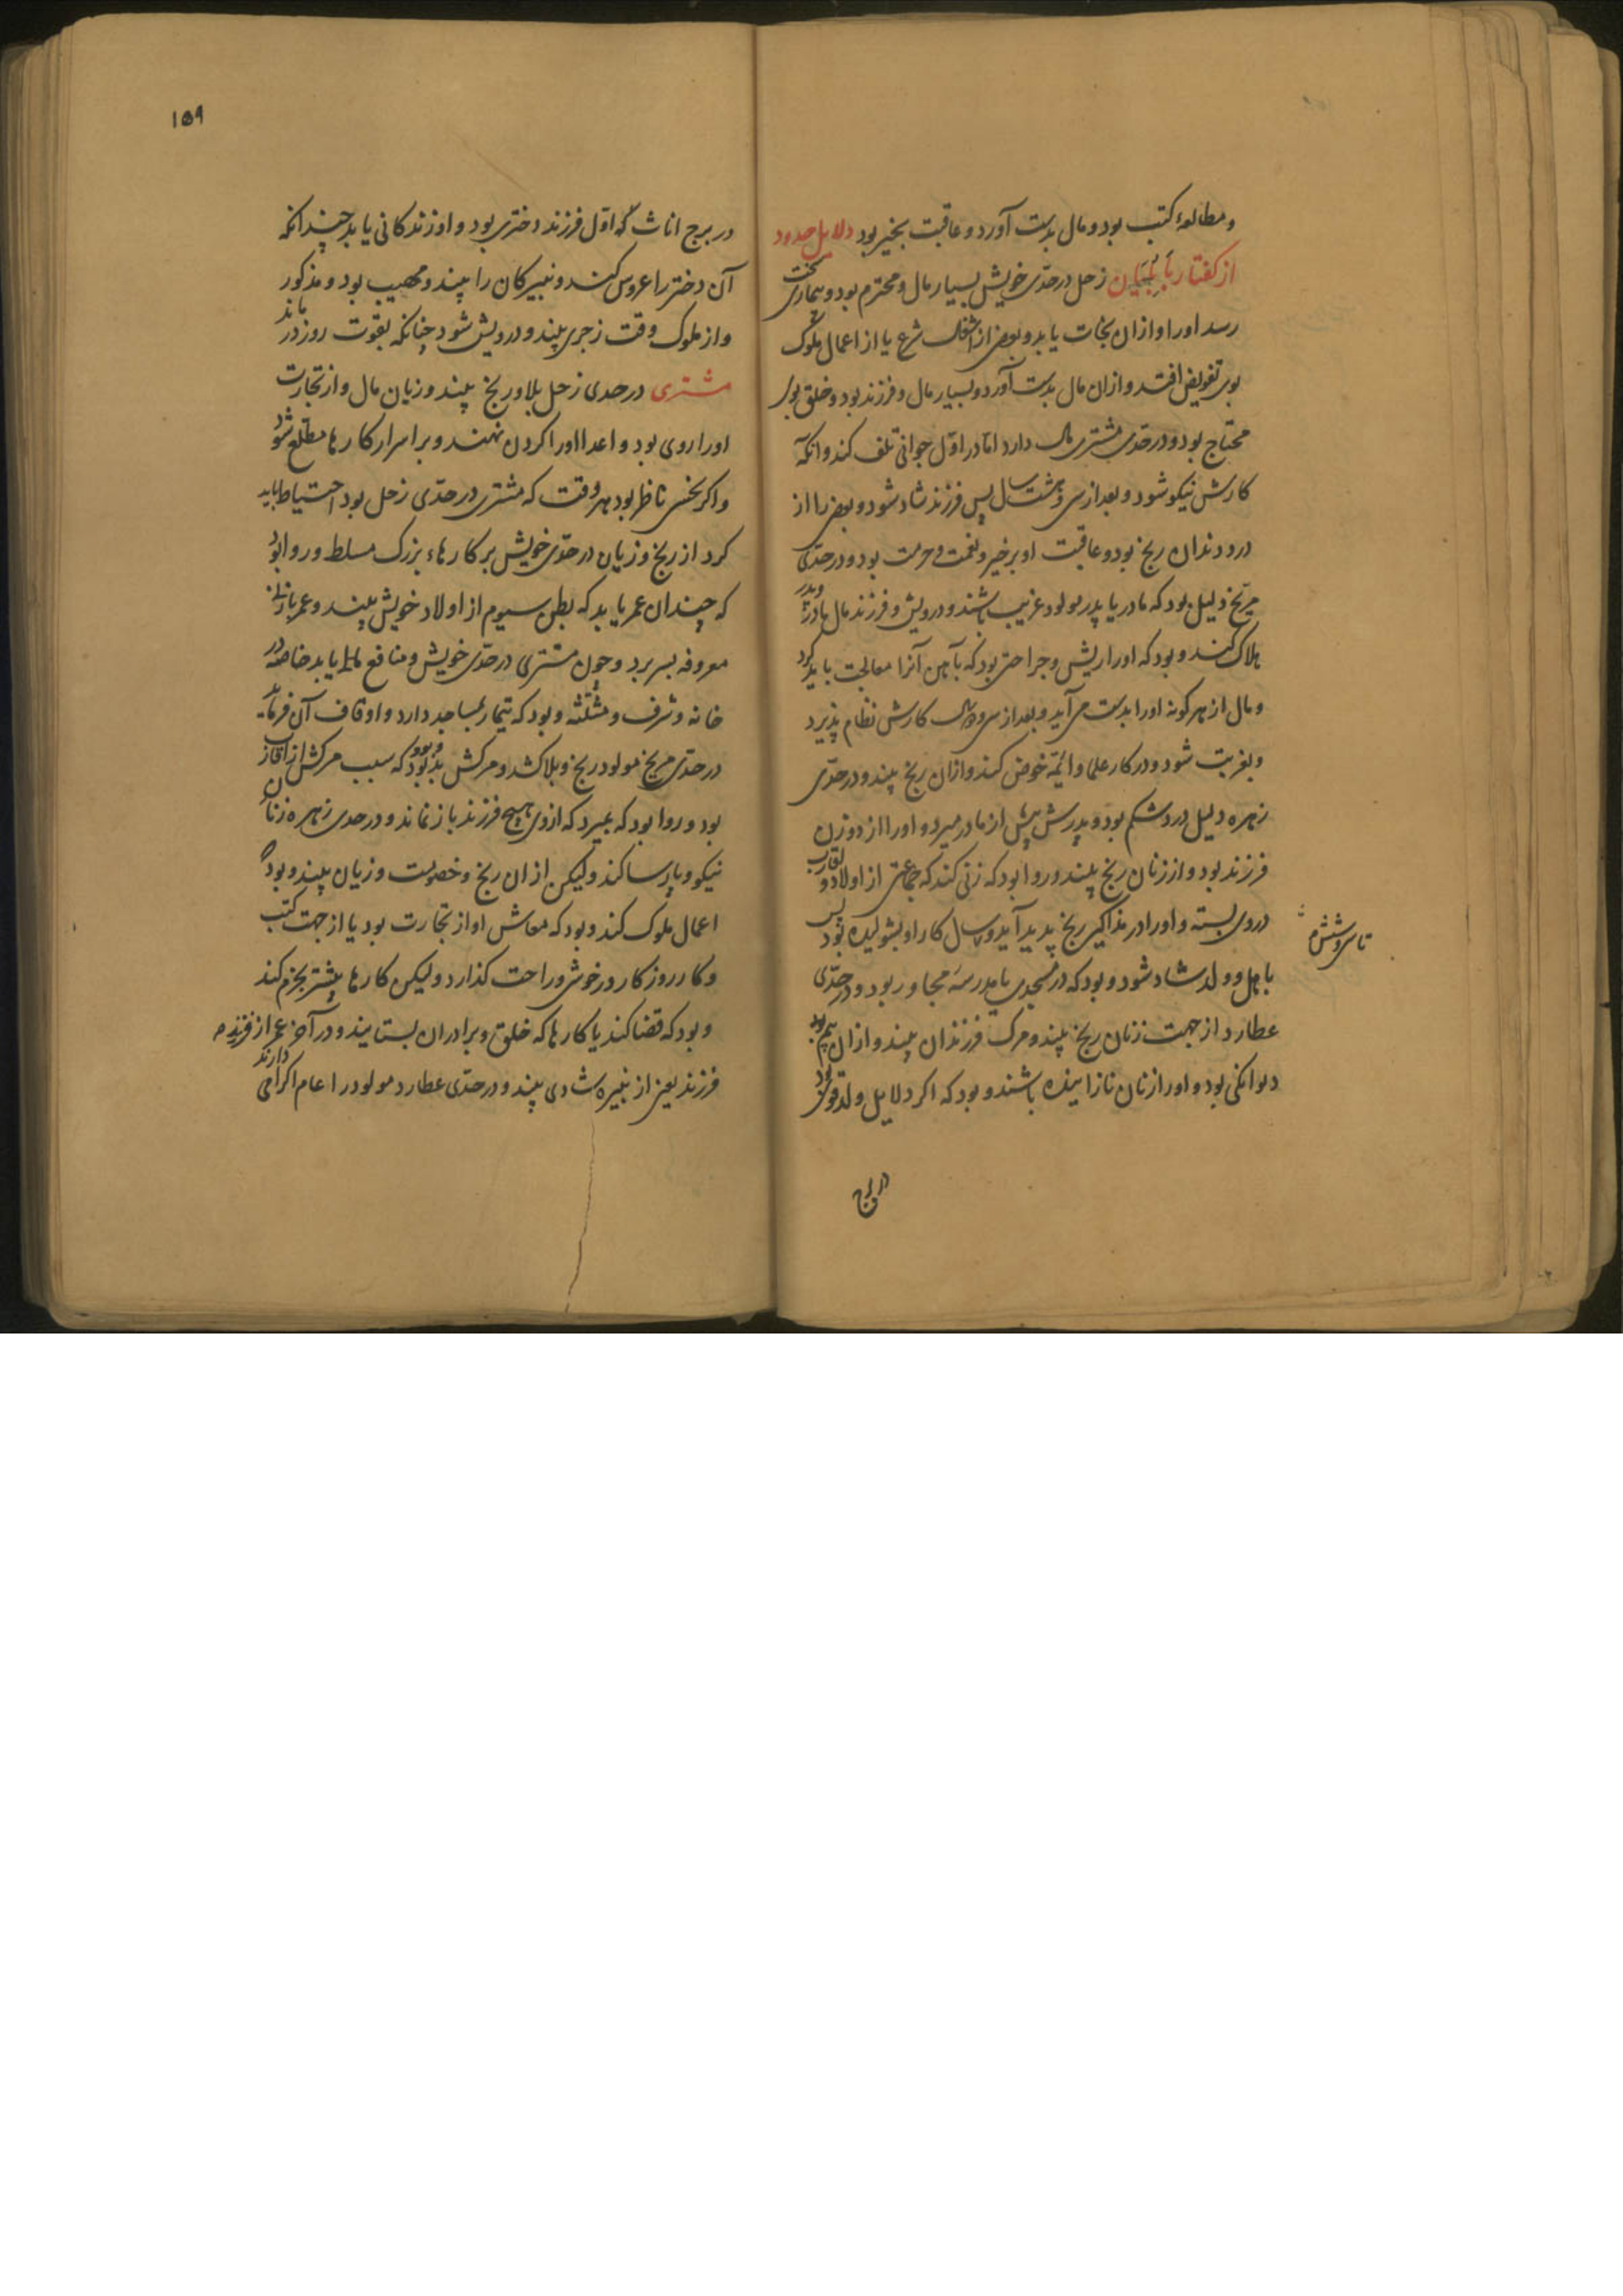 ومطالعهٔ کتب بود ومال بدست آورد وعاقبت بخیر بود دلایل حدود
از کفتار بابلیان زحل در حدّ خویش بسیار مال ومحترم بود وبیماری سخت
رسد اورا واز ان نجات یابد وبعضی از اشغال شرع یا از اعمال ملوک
بوی تفویض افتد واز ان مال بدست آورد وبسیار مال وفرزند بود وخلق بوی
محتاج بود ودر حدّ مشتری مال دارد امّا در اوّل جوانی تلف کند وانکه
کارش نیکو شود وبعد از سی وهشت سال پس فرزند شاد شود وبعضی را از
درد دندان رنج بود وعاقبت او بر خیر ونعمت وحرمت بود ودر حدّی
مریخ دلیل بود که مادر یا پدر مولود غریب باشند ودرویش وفرزند مال مادر وپدر
هلاک کنند وبود که اورا ریش وجراحتی بود که بآهن آنرا معالجت باید کرد
ومال از هر کونه اورا بدست می آید وبعد از سی سال کارش نظام پذیرد
وبغربت شود ودر کار علما وائمّه خوض کند وازان رنج بیند ودر حدّی
زهره دلیل درد شکم بود وپدرش پیش از مادر میرد واورا از دو زن
فرزند بود واز زنان رنج بیند وروا بود که زنی کند که جماعتی از اولاد واقارب
در وی بسته واورا در مذاکیر رنج پدید آید سال کار او بشولیده بود پس
تا سی وشش م
باهل وولد شاد شود وبود که در مسجدی یا مدرسهٔ مجاور بود ودر حدّی
عطارد از جهت زنان رنج بیند ومرک فرزندان بیند وازان بیم بود
دیوانکی بود واورا زنان نازاینده باشند وبود که اکر دلایل ولد قوی بود
در برج
۱۵۹
در برج اناث که اوّل فرزند دختری بود واو زندکانی یابد چندانکه
آن دختر را عروس کند ونبیرکان را بیند ومهیب بود ومذکور
واز ملوک وقت زجری بیند ودرویش شود چنانکه بقوت روز در ماند
مشتری در حدی زحل بلا ورنج بیند وزیان مال واز تجارت
اورا روی بود واعدا اورا کردن نهند وبر اسرار کارها مطلع شود
واکر نحس ناظر بود بهر وقت که مشتری در حدّی زحل بود احتیاط باید
کرد از رنج وزیان در حدّی خویش بر کارهاء بزرک مسلط وروا بود
که چندان عمر یابد که بطن سیوم از اولاد خویش بیند وعمر با زنان
معروفه بسر برد وچون مشتری در حدّی خویش ومنافع یابد خاصه در
خانه وشرف ومثلثه وبود که تیمار مساجد دارد واوقاف آن فرماید
در حدّی مریخ مولود رنج وبلا کشد ومرکش بد بود وبود که سبب مرکش از اقارب
بود وروا بود که بمیرد که ازوی هیچ فرزند باز نماند ودر حدی زهره زنان
نیکو وپارسا کند ولیکن ازان رنج وخصومت وزیان بیند وبود که
اعمال ملوک کند وبود که معاش او از تجارت بود یا از جهت کتب
وکار روزکار در خوشی وراحت کذارد ولیکن کارها بیشتر بجزم کند
وبود که قضا کند یا کارها که خلق وبرادران بستایند ودر آخر عمر از فرزند
فرزند یعنی از نبیره شادی بیند ودر حدّی عطارد مولود را اکرامی دارند